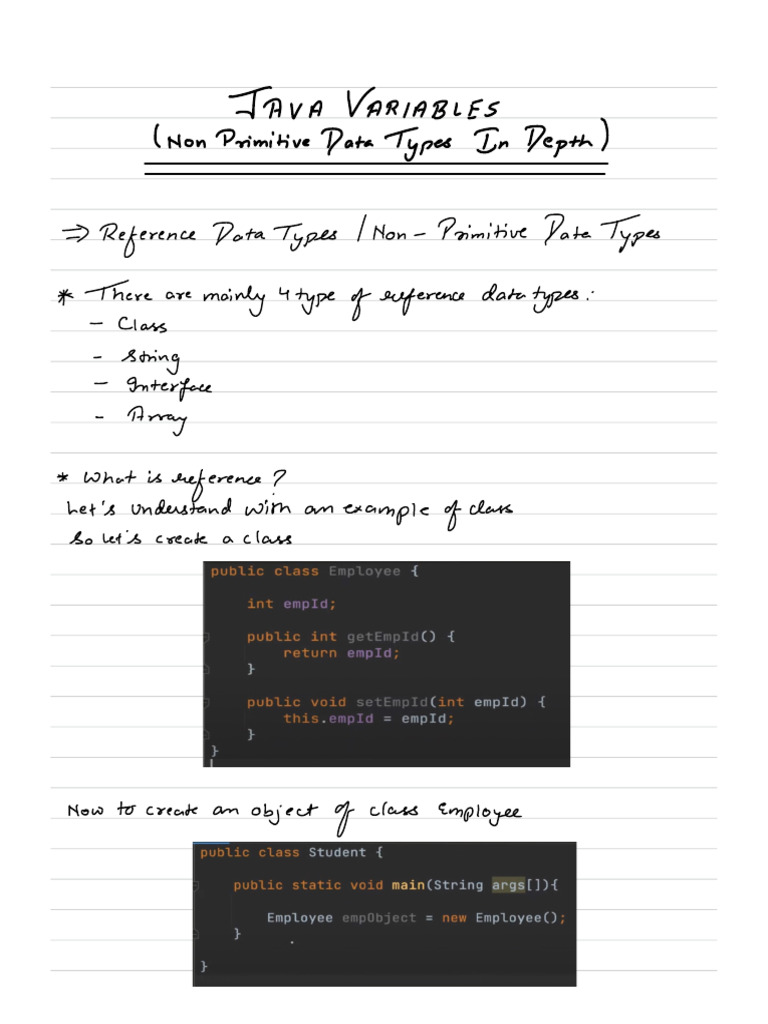 JAVA VARIABLES
(Non Primitive Data Types In Depth)
⇒ Reference Data Types / Non-Primitive Data Types
* There are mainly 4 type of reference data types:
- Class
- String
- Interface
- Array
* What is reference?
Let's understand with an example of class
So let's create a class
public class Employee {
int empId;
public int getEmpId() {
return empId;
}
public void setEmpId(int empId) {
this.empId = empId;
}
}
Now to create an object of class Employee
public class Student {
public static void main(String args[]){
Employee empObject = new Employee();
}
}